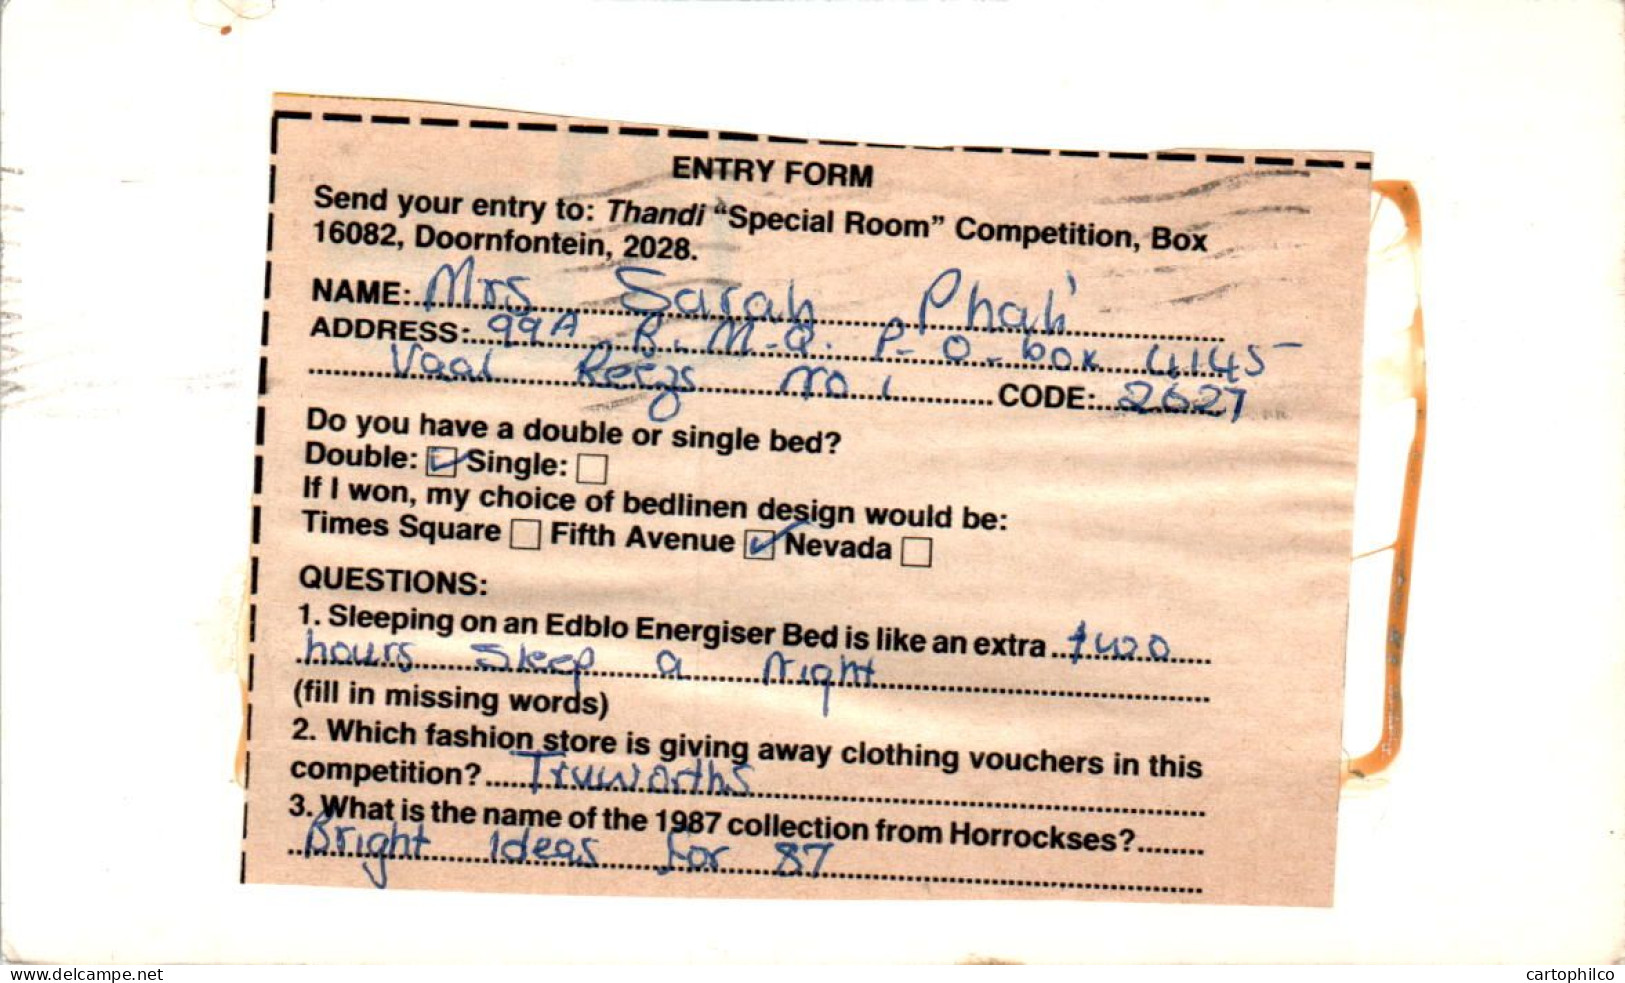 ENTRY FORM
Send your entry to: Thandi "Special Room" Competition, Box
16082, Doornfontein, 2028.
NAME: Mrs Sarah Phali
ADDRESS: 99A R.M.Q. P-O-box 4145
Vaal Reefs No 1 CODE: 2627
Do you have a double or single bed?
Double: Single:
If I won, my choice of bedlinen design would be:
Times Square Fifth Avenue Nevada
QUESTIONS:
1. Sleeping on an Edblo Energiser Bed is like an extra two
hours sleep a night
(fill in missing words)
2. Which fashion store is giving away clothing vouchers in this
competition? Truworths
3. What is the name of the 1987 collection from Horrockses?
Bright Ideas for 87
www.delcampe.net
cartophilco